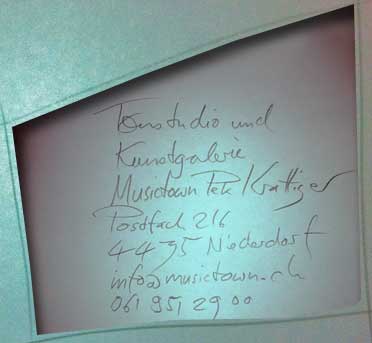 Tonstudio und
Kunstgalerie
Musictown Pete Krattiger
Postfach 216
4435 Niederdorf
info@musictown.ch
061 951 29 00